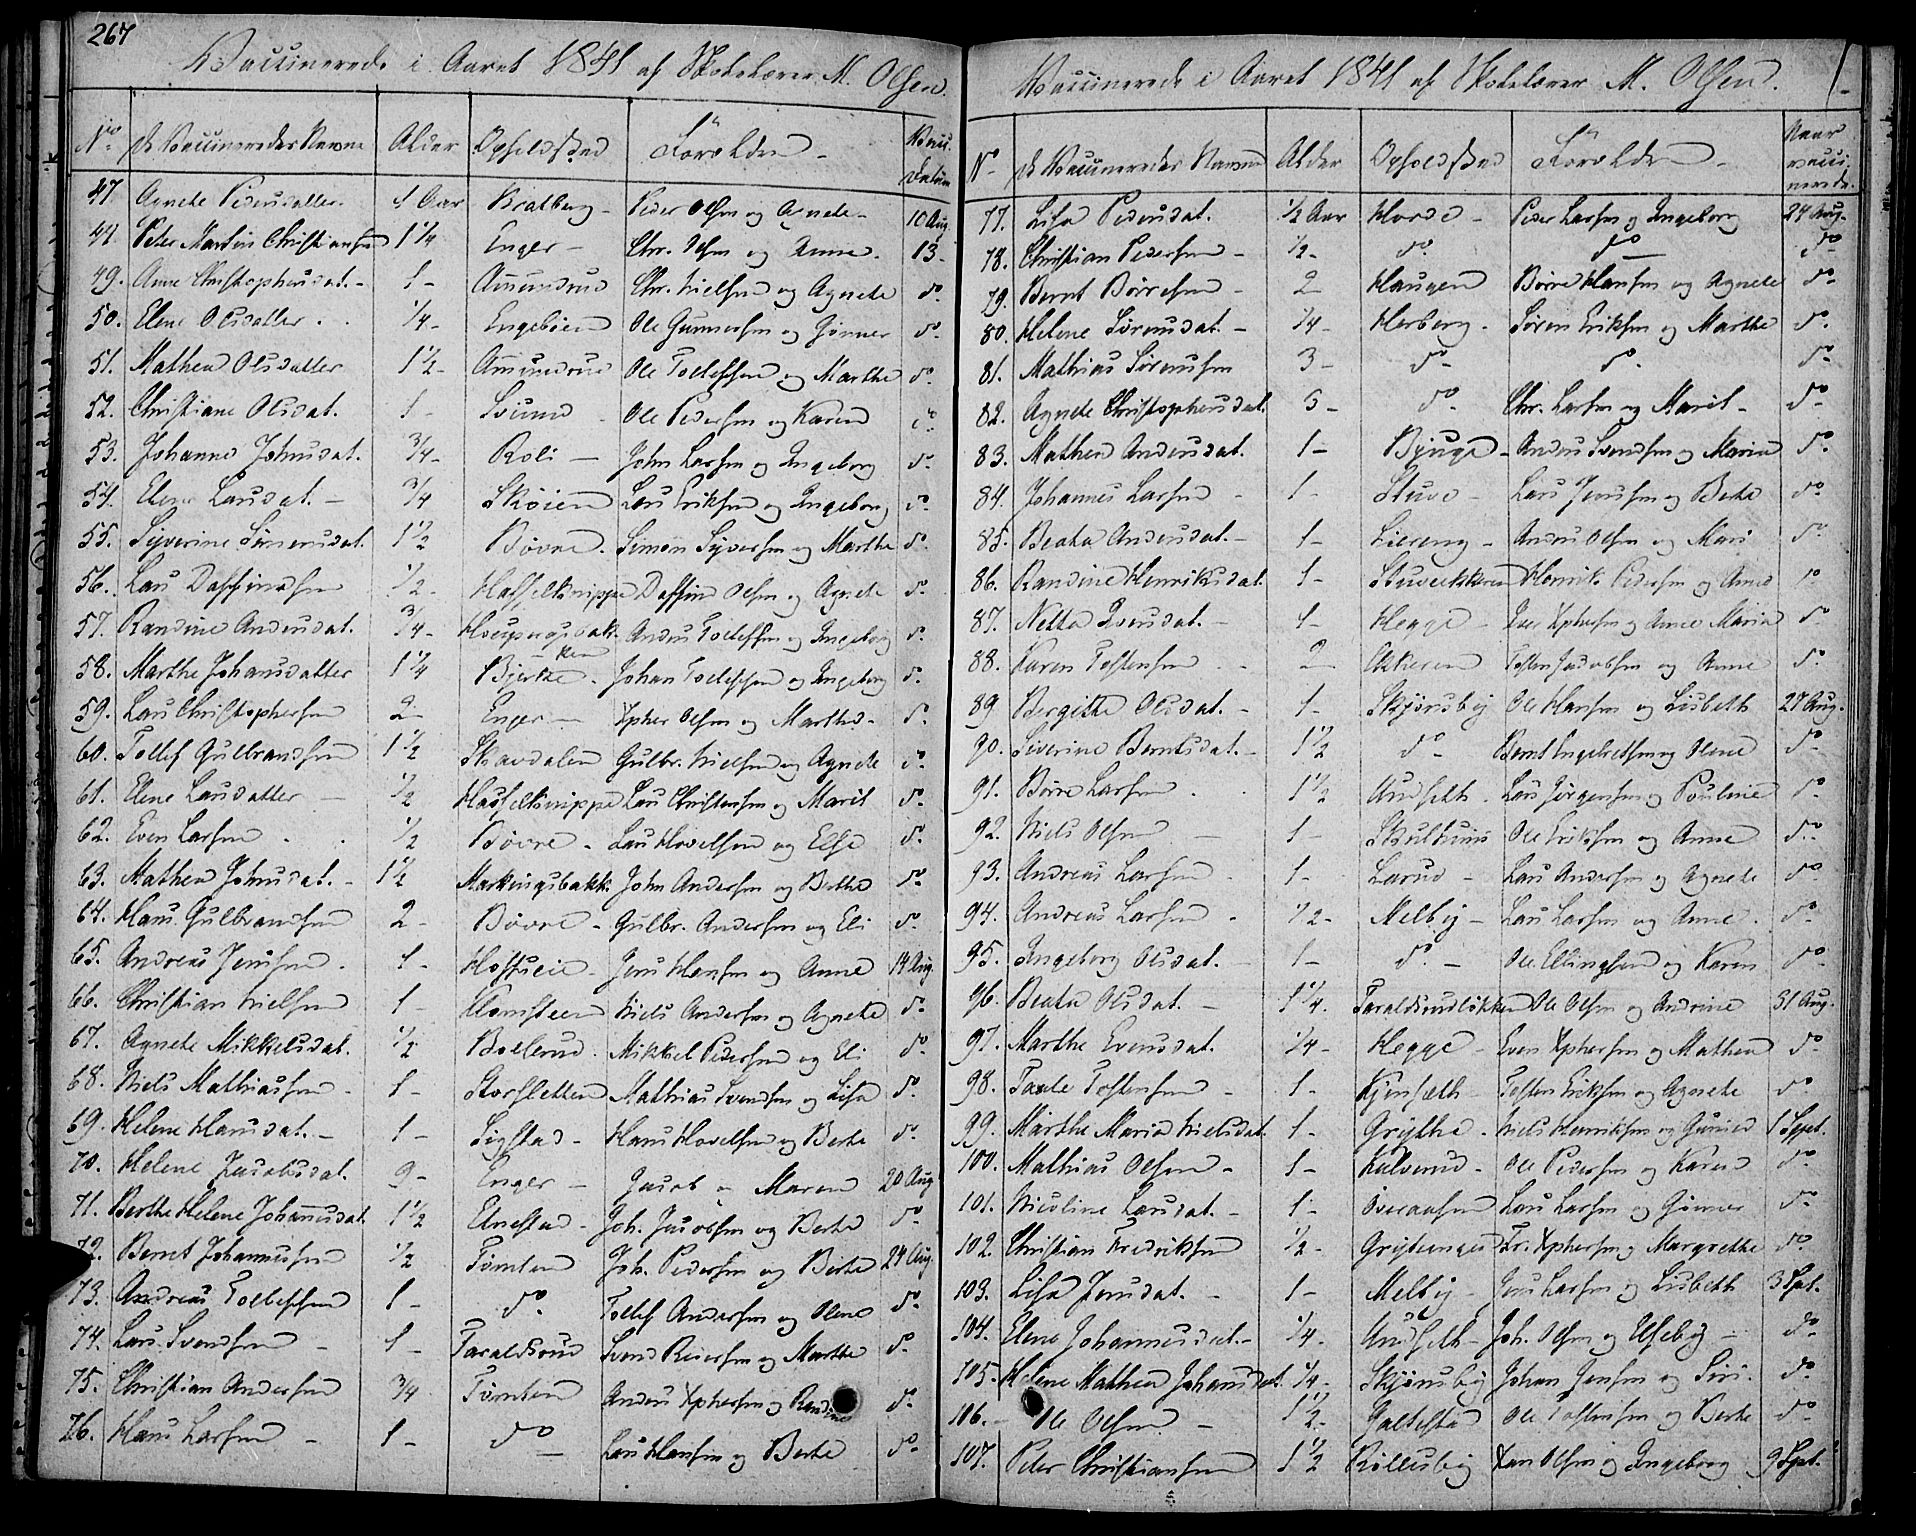 267
Vaccinerede i Aaret 1841 af Skolelærer M. Olsen.
No. De Vaccineredes Navne Alder Opholdssted Forældre Vacc. Datum
47. Agnete Pedersdatter. 1 Aar Bratberg - Peder Olsen og Agnete - 10 Aug.
Peter Martin Christiansen 1 1/4 Enger - Chr. Olsen og Anne. 13 -
49. Anne Christophersdat. - 1 - Amundrud Chr. Nielsen og Agnete do.
50. Elene Olsdatter. 1/4 - Engebøien Ole Gunnersen og Gønner do.
51. Mathea Olsdatter 1 1/2 - Amundrud Ole Tollefsen og Marthe do.
52. Christiane Olsdat. 1 - Ole Pedersen og Karen do.
53. Johanne Johnsdat. 3/4 - Roli - John Larsen og Ingeborg do.
54. Elene Larsdat. - 3/4 Skøien Lars Eriksen og Ingeborg do.
55. Syverine Simensdat. 1 1/2 Bøvre. Simon Syversen og Marthe do.
56. Lars Daffinsen 1/2 - Hasselknippe Daffin Olsen og Agnete do.
57. Randine Andersdat. 3/4 - Anders Tollefsen og Ingeborg do.
58. Marthe Johansdatter 1 1/4 Bjerke - Johan Tollefsen og Ingeborg do.
59. Lars Christophersen 2 - Enger - Xpher Olsen og Marthe - do.
60. Tollef Gulbrandsen 1 1/2 Skavdalen Gulbr. Nielsen og Agnete do.
61. Elene Larsdatter - 1/2 Hasselknippe Lars Christensen og Marit do.
62. Even Larsen. 1/2 Bøvre - Lars Hovelsen og Else do.
63. Mathea Johnsdat. - 1 1/2 Markingsbakk. John Andersen og Berthe do.
64. Hans Gulbrandsen 2 - Bøvre - Gulbr. Andersen og Eli do.
65. Andreas Jensen. 1 - Hofseie - Jens Hansen og Anne 14 Aug.
66. Christian Nielsen 1 - Hornsteen Niels Andersen og Agnete do.
67. Agnete Mikkelsdat. 1/2 Bollerud. Mikkel Pedersen og Eli do.
68. Niels Mathiasen - 1 - Storsletten Mathias Svendsen og Lisa do.
69. Helene Hansdat. - 1 - Sigstad - Hans Hovelsen og Berte do.
70. Helene Jacobsdat. 9 - Enger - Jacob - Maren 20 Aug.
71. Berthe Helene Johannesdat. 1 1/2 Elnestad - Joh. Jacobsen og Berte do.
72. Bernt Johannesen 1/2 Tømten Joh. Pedersen og Berte 24 Aug.
73. Andreas Tollefsen 1 - do. Tollef Andersen og Olene do.
74. Lars Svendsen - 1 - Taraldsrud Svend Reiersen og Marthe do.
75. Christian Andersen 3/4 Tømten Anders Xphersen og Randine do.
76. Hans Larsen - 1 - do. Lars Hansen og Berte do.
Vaccinerede i Aaret 1841 af Skolelærer M. Olsen.
No. De Vaccineredes Navne Alder Opholdssted Forældre - Naar vaccinerede.
77. Lisa Pedersdat. 1/2 Aar Horde - Peder Larsen og Ingeborg 24 Aug.
78. Christian Pedersen - 1/2 - do. do. do.
79. Bernt Børresen - 2 Haugen Børre Hansen og Agnete do.
80. Helene Sørensdat. - 1/4 - Herberg. Søren Eriksen og Marthe do.
81. Mathias Sørensen 3 - do. do. do.
82. Agnete Christophersdat. 5 - do. Chr. Larsen og Marit - do.
83. Mathea Andersdat. 1 - Bjuge - Anders Svendsen og Maria do.
84. Johannes Larsen - 1 - Stuve - Lars Jensen og Berte do.
85. Beata Andersdat. - 1 - Liereng - Anders Olsen og Mari do.
86. Randine Henriksdat. 1 - Stuveekkeren Henrik Pedersen og Anne do.
87. Netta Iversdat. - 1 - Hegge - Iver Xphersen og Anne Maria do.
88. Karen Tostensen - 2 Ekkeren Tosten Jacobsen og Anne do.
89 Bergitte Olsdat. - 1 - Skjønsby Ole Hansen og Lisbeth 27 Aug.
90. Siverine Berntsdat. - 1 1/2 do. Bernt Engebretsen og Olene do.
91. Børre Larsen. 1 1/2 Undseth. Lars Jørgensen og Pouline do.
92. Niels Olsen - 1 - Skulhuus Ole Eriksen og Anne do.
93. Andreas Larsen - 1 - Larud - Lars Andersen og Agnete do.
94. Andreas Larsen - 1/2 - Melby - Lars Larsen og Anne. do.
95. Ingeborg Olsdat. - 1 - do. - Ole Ellingsen og Karen do.
96. Beata Olsdat. - 1 1/4. Taraldsrudløkken Ole Olsen og Andrine 31 Aug.
97. Marthe Evensdat. 1/4 - Hegge - Even Xphersen og Mathea do.
98. Tostensen - 1 - Kjenseth - Tosten Eriksen og Agnete do.
99. Marthe Maria Nielsdat. 1 - Grythe - Niels Henriksen og Gunild 1 Sept.
100. Mathias Olsen - 1 - Kalverud - Ole Pedersen og Karen do.
101. Nicoline Larsdat. - 1 - Overaasen Lars Larsen og Gønner do.
102. Christian Fredriksen 1/2 - Fr. Xphersen og Margrethe do.
103. Lisa Jensdat. - 1 - Melby - Jens Larsen og Lisbeth 3 Spt.
104. Elene Johannesdat. - 1/4 - Undseth - Joh. Olsen og Elseby - do.
105. Helene Mathea Johansdat. 1/4 - Skjønsby Johan Jensen og Siri - do.
106. - Ole Olsen - 1 1/2 - Galtestad Ole Tostensen og Berte do.
107. Peter Christiansen 1 1/2 Røllusby Xan Olsen og Ingeborg 9 Spt.